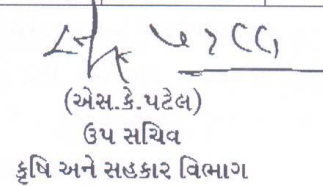 (એસ.કે.પટેલ)
ઉપ સચિવ
કૃષિ અને સહકાર વિભાગ